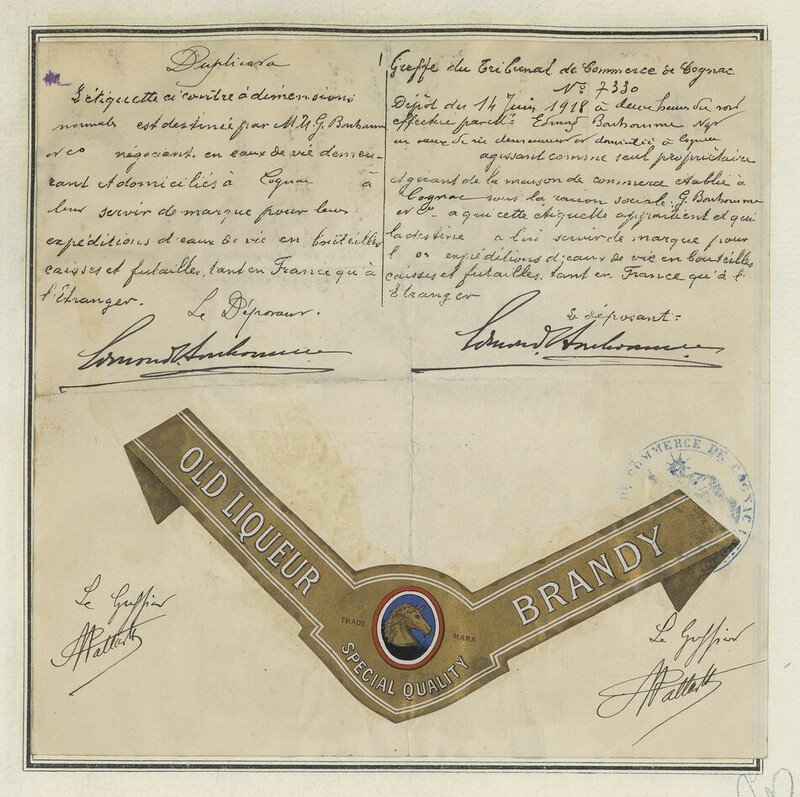 Duplicata
L'étiquette ci contre à dimensions
normale est destinée par M. G. Bonhomme
et Co négociant en eaux de vie demeu-
rant et domiciliés à Cognac à
leur servir de marque pour leurs
expéditions d'eaux de vie en bouteilles
caisses et futailles, tant en France qu'à
l'Etranger.
Le Déposant.
Edmond Bonhomme
Greffe du Tribunal de Commerce de Cognac
No 7330
Dépôt du 14 Juin 1918 à deux heures du soir
effectué par Mr Edmond Bonhomme Ngt
en eaux de vie demeurant et domicilié à Cognac
agissant comme seul propriétaire
et gérant de la maison de commerce établie à
Cognac sous la raison sociale: G. Bonhomme
et Co a qui cette etiquette appartient et qui
la destine a lui servir de marque pour
expéditions d'eaux de vie en bouteilles
caisses et futailles, tant en France qu'à l'
Etranger
Le déposant:
Edmond Bonhomme
DE COMMERCE DE COGNAC
OLD LIQUEUR
BRANDY
TRADE MARK
SPECIAL QUALITY
Le Greffier
Le Greffier